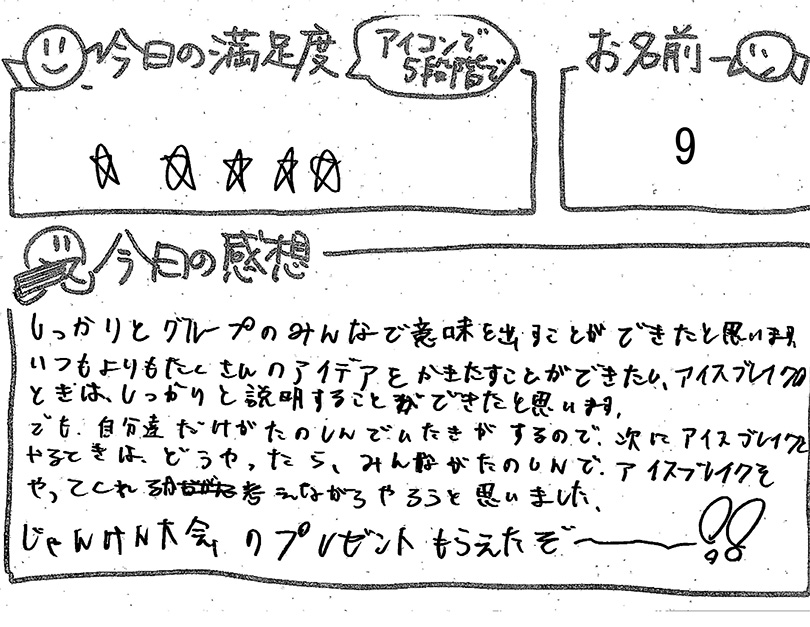 今日の満足度
アイコンで
5段階で
お名前
9
☆☆☆☆☆
今日の感想
しっかりとグループのみんなで意味を出すことができたと思います。
いつもよりもたくさんのアイデアをかきたすことができたし、アイスブレイクの
ときは、しっかりと説明することができたと思います。
でも、自分達だけがたのしんでいたきがするので、次にアイスブレイクを
やるときは、どうやったら、みんながたのしんで、アイスブレイクを
やってくれるか考えながらやろうと思いました。
じゃんけん大会のプレゼントもらえたぞ〜!!